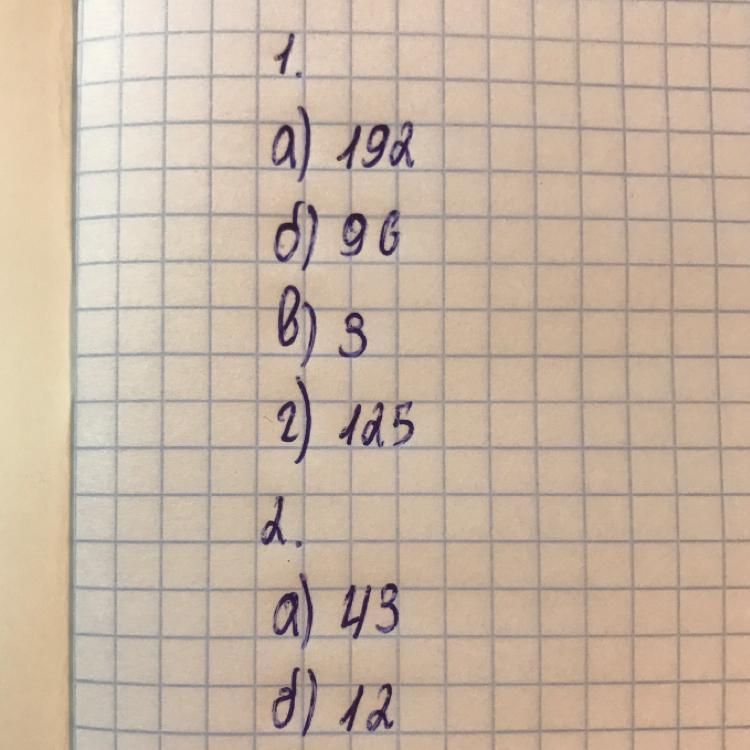 1.
а) 192
б) 96
в) 3
г) 125
2.
а) 43
б) 12